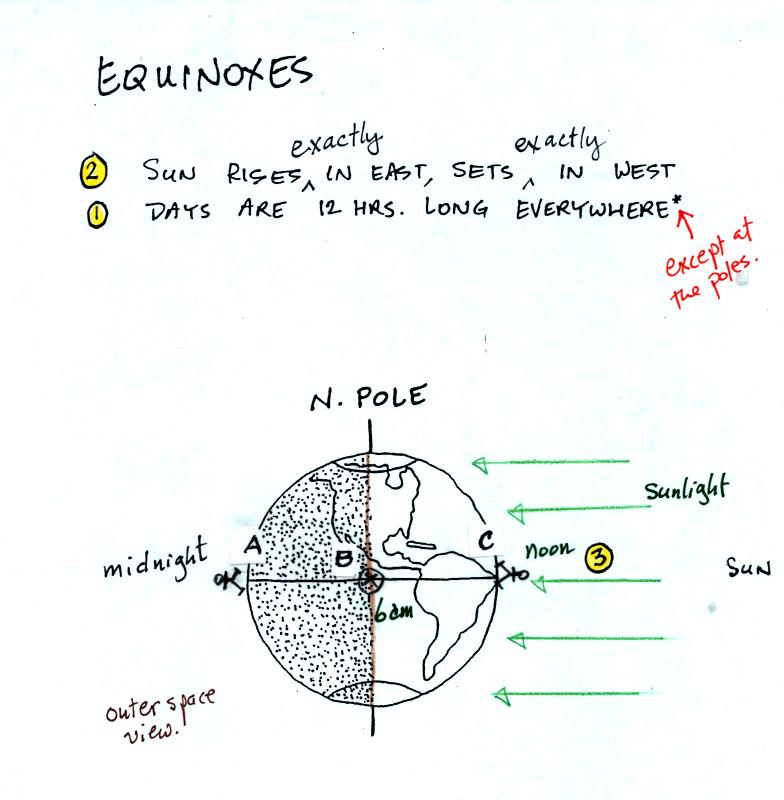 EQUINOXES
exactly exactly
2 SUN RISES ^ IN EAST, SETS ^ IN WEST
1 DAYS ARE 12 HRS. LONG EVERYWHERE*
except at
the poles.
N. POLE
Sunlight
A
C
midnight
B
noon 3
SUN
6am
outer space
view.